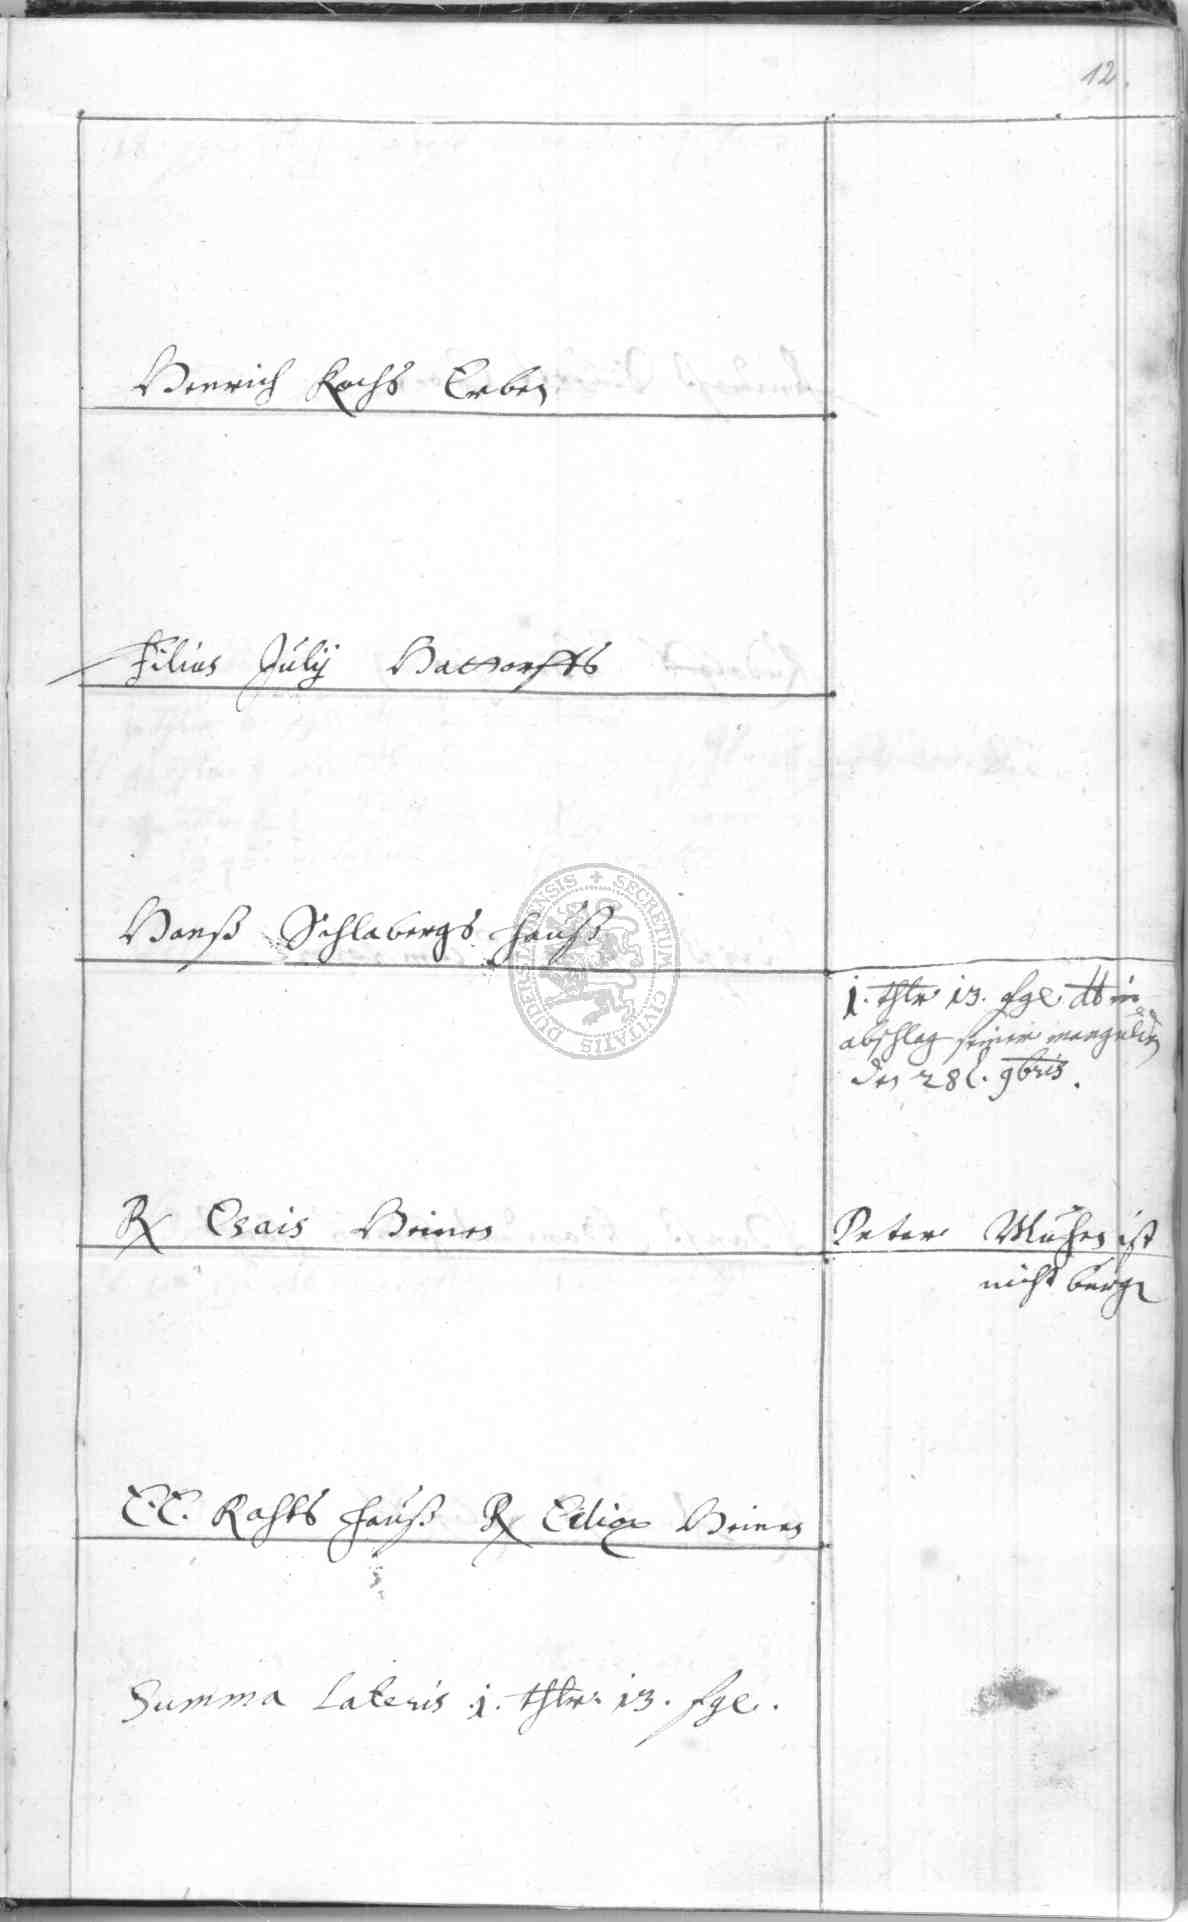 12.
Henrich Kochs Erben
Filius Julij Hattorffs
Hanß Schlabergs Hauß
1. thlr 13. sgl dt in
abschlag seiner
den 28t. 9bris.
R Esais Heinen
Peter Mühen ist
nicht burge
E. E. Rahts Hauß R Heinen
Summa Lateris 1. thlr 13. sgl.
SECRETUM CIVITATIS DUDERSTADENSIS